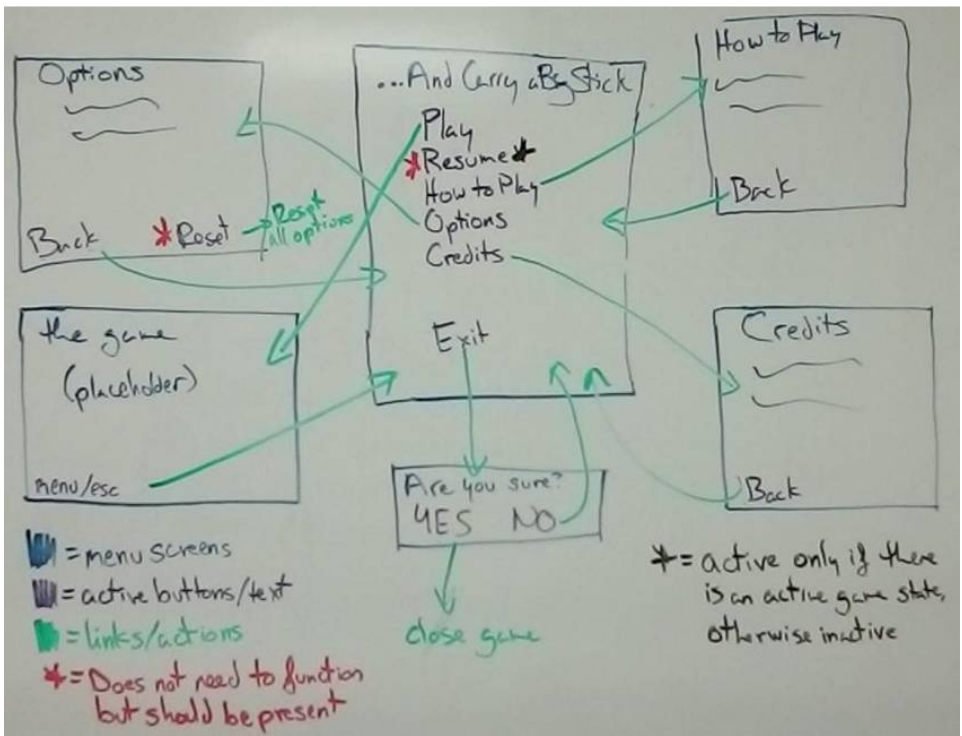 Options
Back
*Reset
Reset
all options
...And Carry a Big Stick
Play
*Resume*
How to Play
Options
Credits
Exit
How to Play
Back
the game
(placeholder)
menu/esc
Are you sure?
YES NO
close game
Credits
Back
= menu screens
= active buttons/text
= links/actions
*= Does not need to function
but should be present
*= active only if there
is an active game state,
otherwise inactive